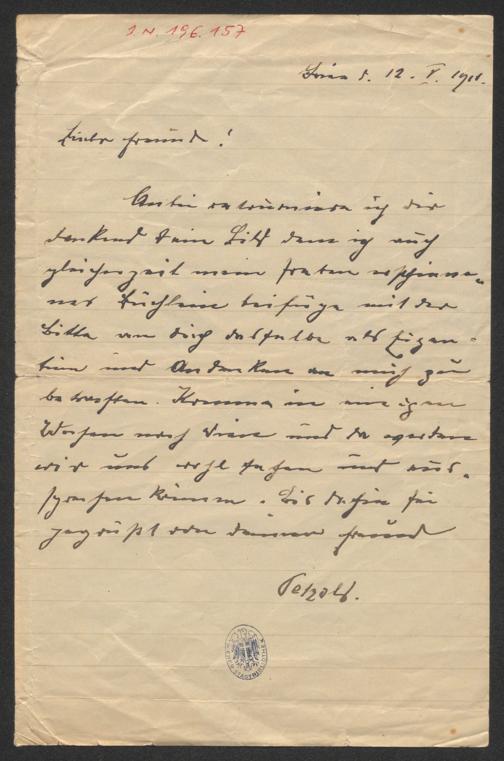 I.N. 196.157
12. V. 1911.
Lieber Freund!
Anbei retourniere ich dir
dankend dein Bild dem ich auch
gleicherzeit mein soeben erschiene-
nes Büchlein beifüge mit der
Bitte an dich dasselbe als Eigen-
tum und Andenken an mich zu
betrachten. Komme in einigen
Wochen nach Wien und da werden
wir uns wohl sehen und aus-
sprechen können. Bis dahin sei
gegrüßt von deinem Freund
Petzold.